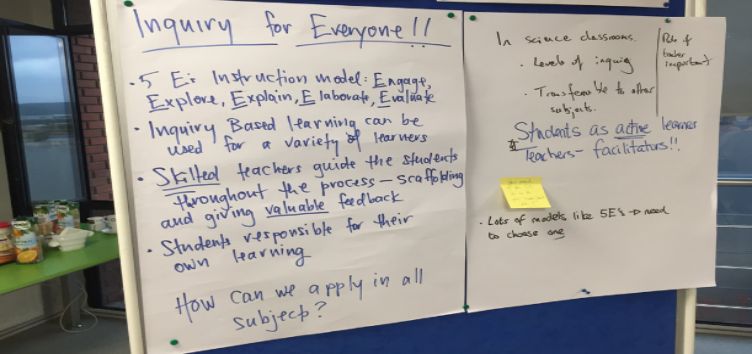 Inquiry for Everyone!!
• 5 E's Instruction model: Engage,
Explore, Explain, Elaborate, Evaluate
• Inquiry Based learning can be
used for a variety of learners
• Skilled teachers guide the students
throughout the process – scaffolding
and giving valuable feedback
• Students responsible for their
own learning
How can we apply in all
subjects?
In science classrooms
• Levels of inquiry
• Transferable to other
subjects.
Role of
teacher
important
Students as active learner
Teachers – facilitators!!
• Lots of models like 5E's → need
to choose one